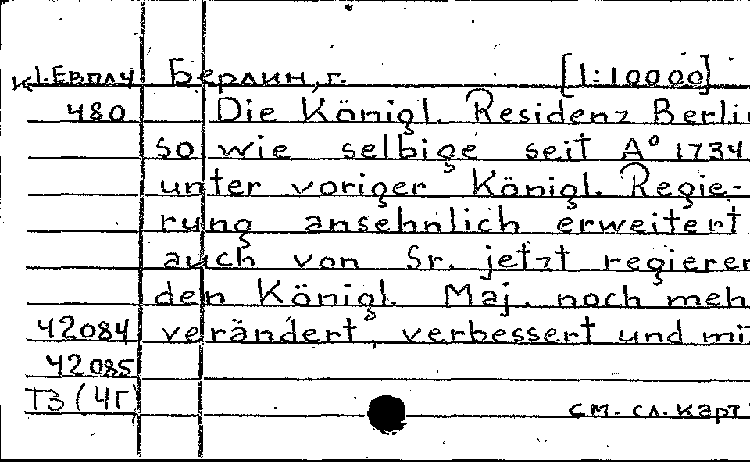 к1.Евплу Берлин, г. [1:10000]
480 Die Königl. Residenz Berli
so wie selbige seit A° 1734
unter voriger Königl. Regie-
rung ansehnlich erweitert
auch von Sr. jetzt regieren
den Königl. Maj. noch meh
42084 verändert, verbessert und mi
42085
ТЗ (4Г) см. сл. карт